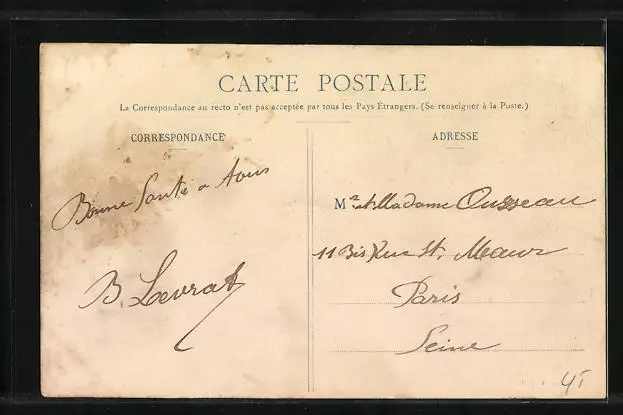 CARTE POSTALE
La Correspondance au recto n'est pas acceptée par tous les Pays Étrangers. (Se renseigner à la Poste.)
CORRESPONDANCE
Bonne Santé a tous
B. Levrat
ADRESSE
Mr et Madame Ousseau
11 Bis Rue St. Maur
Paris
Seine